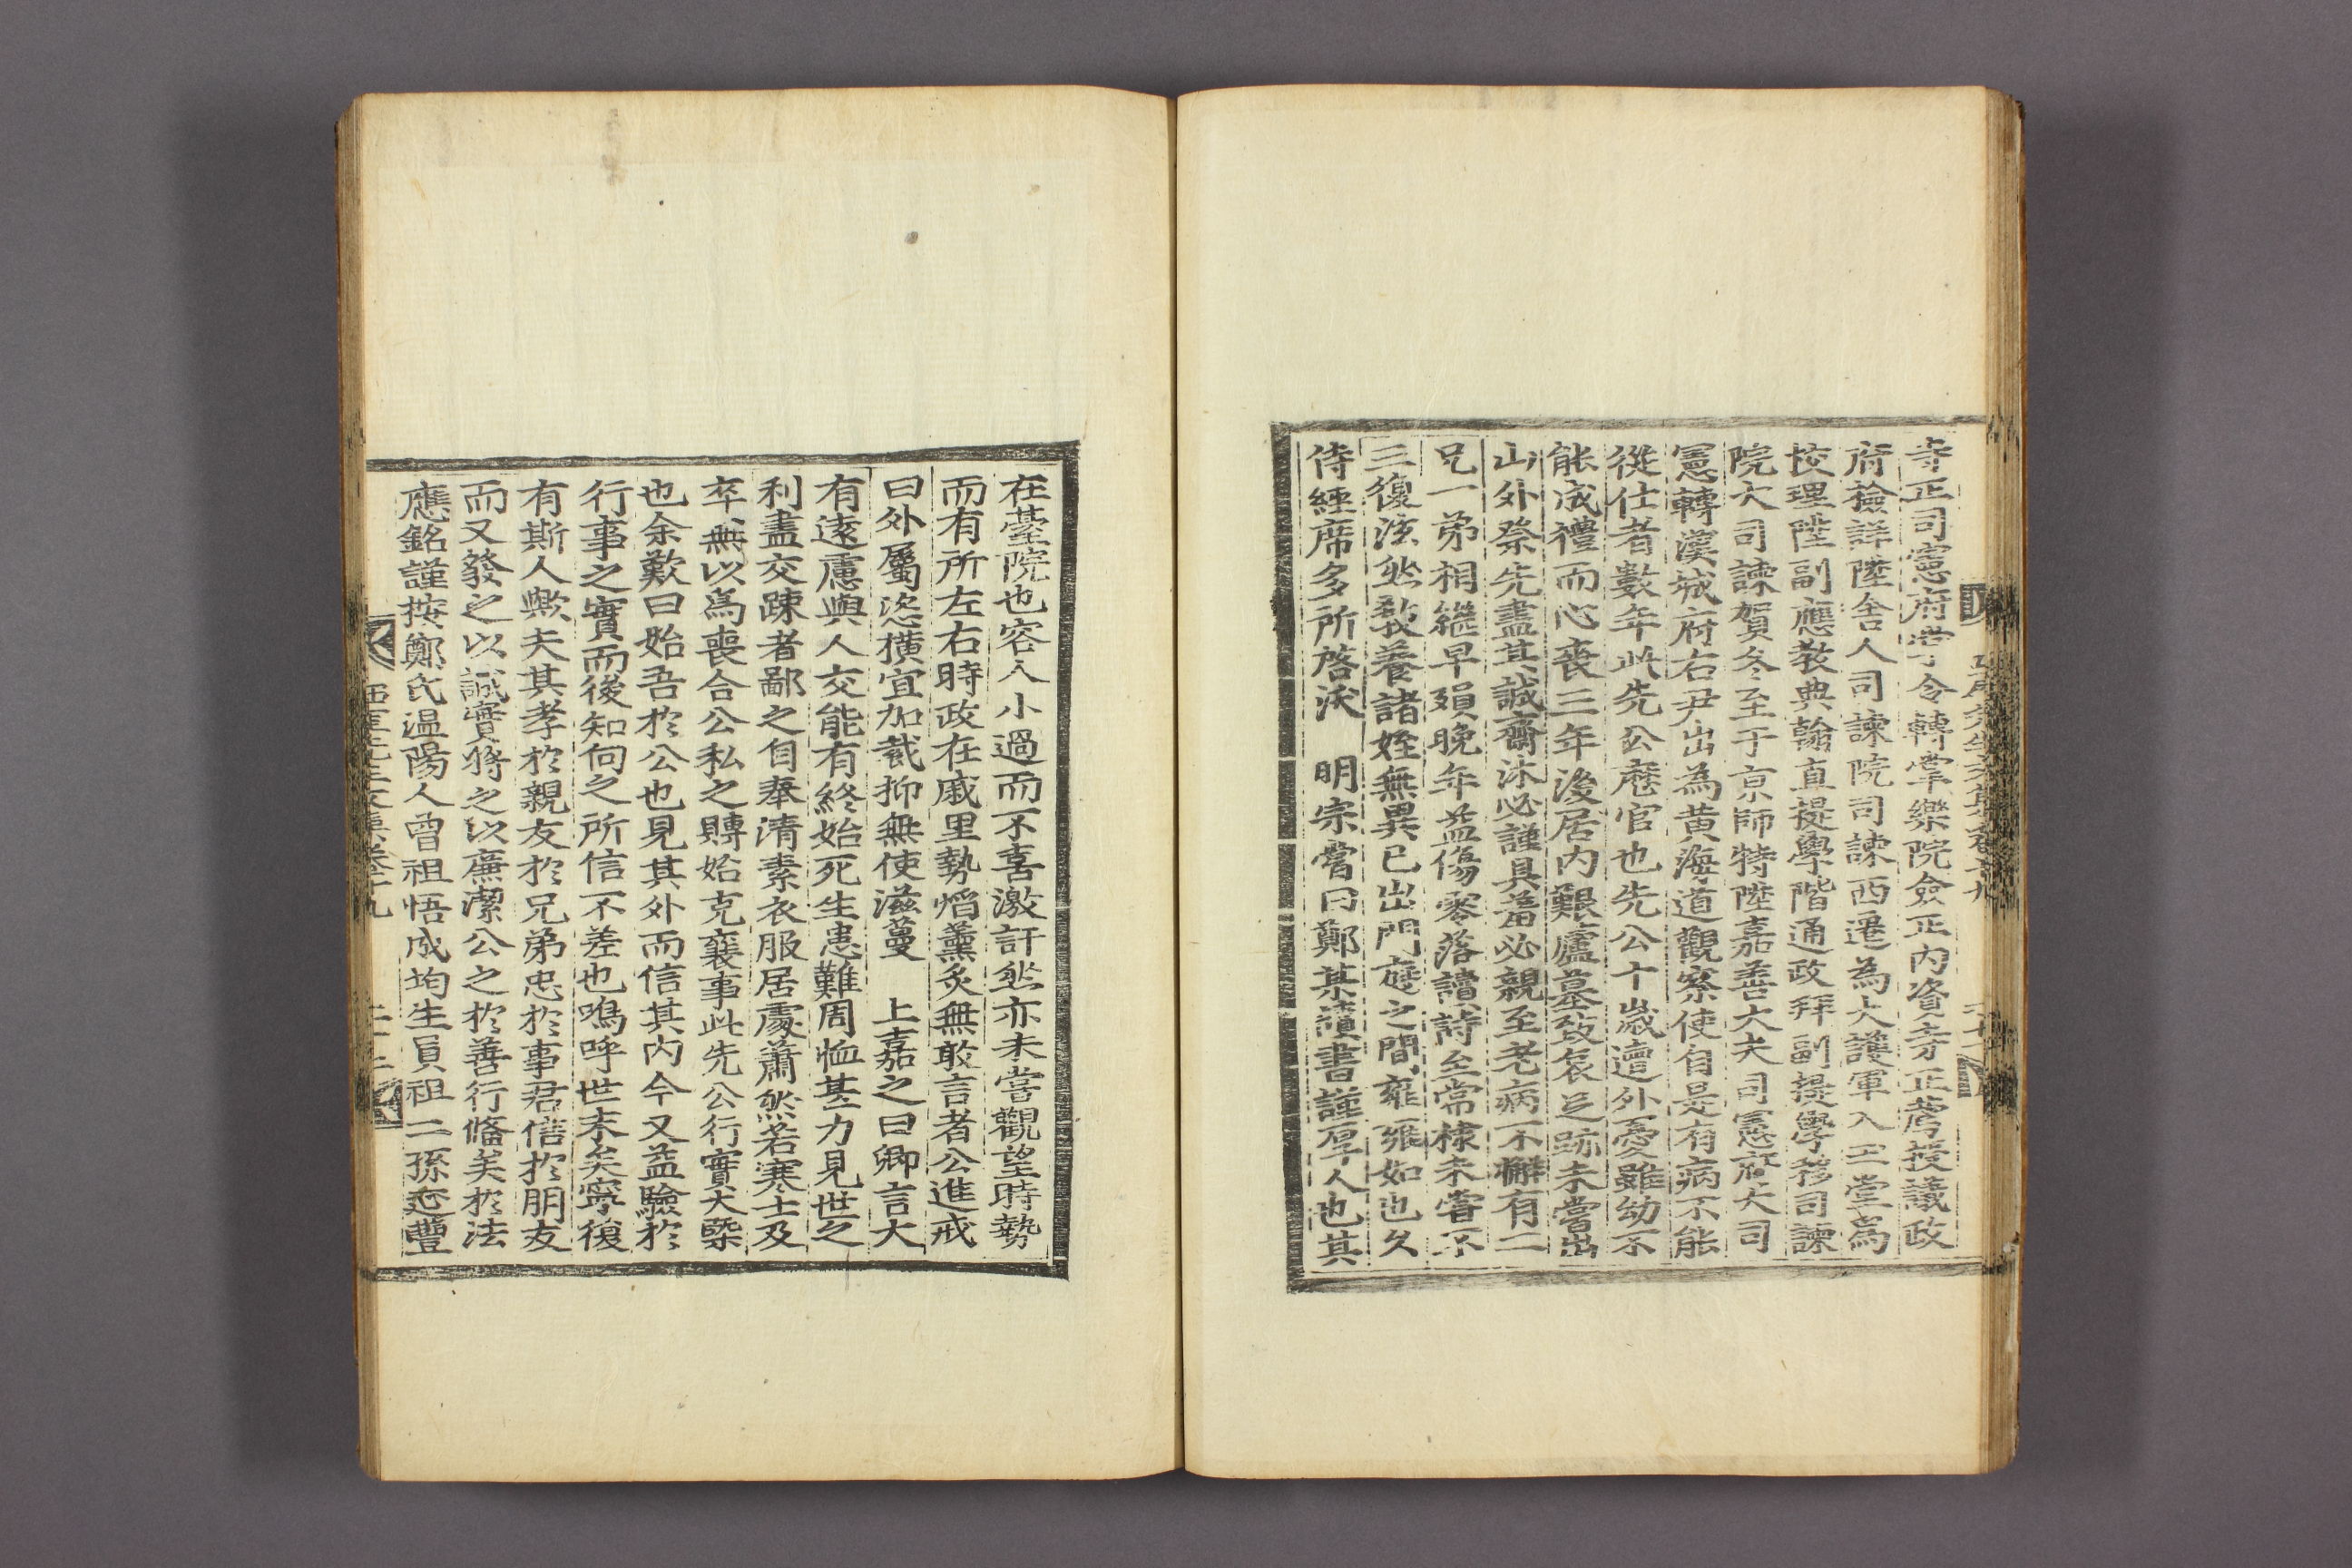 寺正司憲府掌令轉掌樂院僉正內資寺正薦授議政
府檢詳陞舍人司諫院司諫西遷為大護軍入玉堂爲
校理陞副應敎典翰直提學階通政拜副提學移司諫
院大司諫賀冬至于京師特陞嘉善大夫司憲府大司
憲轉漢城府右尹出為黃海道觀察使自是有病不能
從仕者數年此先公歷官也先公十歲遭外憂雖幼不
能成禮而心喪三年後居內艱廬墓致哀足跡未嘗出
山外祭先盡其誠齋沐必謹具羞必親至老病不懈有二
兄一弟相繼早殞晩年益傷零落讀詩至常棣未嘗不
三復泫然敎養諸姪無異已出門庭之間雍雍如也久
侍經席多所啓沃　明宗嘗曰鄭某讀書謹厚人也其
在臺院也容人小過而不喜激訐然亦未嘗觀望時勢
而有所左右時政在戚里勢焰薰炙無敢言者公進戒
曰外屬恣橫宜加裁抑無使滋蔓　上嘉之曰卿言大
有遠慮與人交能有終始死生患難周恤甚力見世之
利盡交踈者鄙之自奉清素衣服居處蕭然若寒士及
卒無以爲喪合公私之賻始克襄事此先公行實大槩
也余歎曰始吾於公也見其外而信其內今又益驗於
行事之實而後知向之所信不差也嗚呼世末矣寧復
有斯人歟夫其孝於親友於兄弟忠於事君信於朋友
而又發之以誠實將之以廉潔公之於善行備美於法
應銘謹按鄭氏溫陽人曾祖悟成均生員祖二孫豐